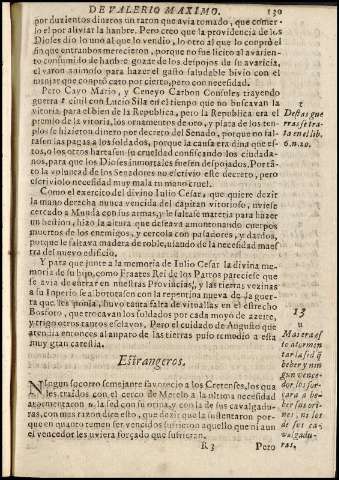 DE VALERIO MAXIMO. 130
por duzientos dineros un raton que avia tomado, que comer-
lo el por aliviar la hanbre. Pero creo que la providencia de los
Dioses dio lo uno al que lo vendio, i lo otro al que lo conprò el
fin que entranbos merecieron, porque no fue licito al avarien-
to consumido de hanbre gozar de los despojos de su avaricia,
el varon animado para hazer el gasto saludable bivio con el
manjar que conprò caro por cierto, pero con necesidad.
Pero Cayo Mario, y Ceneyo Carbon Consules trayendo
guerra civil con Lucio Sila en el tienpo que no buscavan la
vitoria para el bien de la Republica, pero la Republica era el
premio de la vitoria, los ornamentos de oro, y plata de los ten-
plos se hizieron dinero por decreto del Senado, porque no fal-
tasen las pagas a los soldados, porque la causa era dina que es-
tos, o los otros hartasen su crueldad confiscando los ciudada-
nos, para que los Dioses inmortales fuesen despojados. Por tã-
to la voluntad de los Senadores no escrivio este decreto, pero
escriviolo necesidad muy mala tu mano cruel.
Como el exercito del divino Iulio Cesar, que quiere dezir
la mano derecha nunca vencida del capitan vitorioso, uviese
cercado a Munda con sus armas, y le faltase materia para hazer
un bestion, hizo la altura que deseava amontonando cuerpos
muertos de los enemigos, y cercola con pasadores, y dardos,
porque le faltava madera de roble, usando de la necesidad maes
tra del nuevo edificio.
Y para que junte a la memoria de Iulio Cesar la divina me-
moria de su hijo, como Fraates Rei de los Partos pareciese que
se avia de entrar en nuestras Provincias, y las tierras vezinas
a su Inperio se alborotasen con la repentina nueva de la guer-
ra que les ponia, tuvo tanta falta de vituallas en el estrecho
Bosforo, que trocavan los soldados por cada moyo de azeite,
y trigo otros tantos esclavos. Pero el cuidado de Augusto que
atento entonces al anparo de las tierras puso remedio a esta
muy gran carestia.
Estrangeros.
Ningun socorro semejante favorecio a los Cretenses, los qua
les traidos con el cerco de Metelo a la ultima necesidad
atormentaron u la sed con su orina, y con la de sus cavalgadu-
ras, con mas razon dire esto, que dezir que la sustentaron por-
que en quanto temen ser vencidos sufrieron aquello que ni aun
el vencedor les uviera forçado que sufrieran.
R 3 Pero
t
Desta gue
rra se tra-
ta en el lib.
6. n. 20.
13
u
Mas era es
to atormen
tar la sed q̃
beber y nin
gun vence-
dor los for-
çara a be-
ber sus ori-
nes, ni los
de sus ca-
valgadu-
ras,